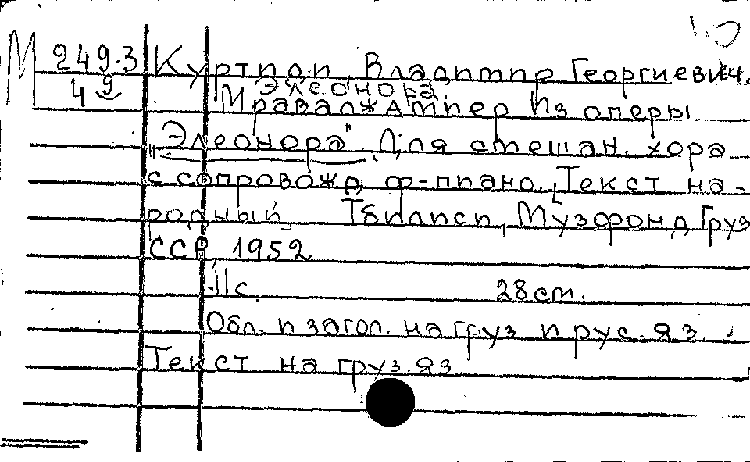 М 249.3 Куртиди, Владимир Георгиевич.
4 9 Элеонора.
Мравалжамиер из оперы
„Элеонора". Для смешан. хора
с сопровожд. ф-пиано. Текст на-
родный. Тбилиси, Музфонд Груз
ССР, 1952
11 с. 28 см.
Обл. и загол. на груз и рус. яз.
Текст на груз. яз